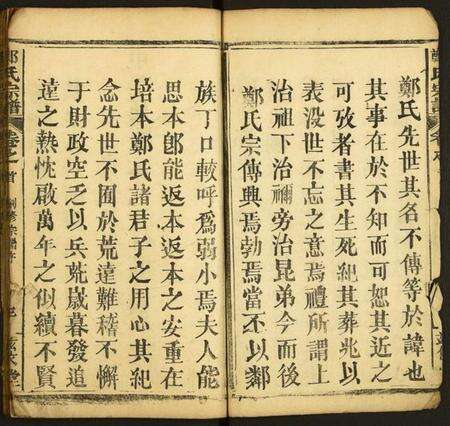 鄭氏先世其名不傳等於諱也
其事在於不知而可恕其近之
可攷者書其生死紀其葬兆以
表沒世不忘之意焉禮所謂上
治祖下治禰旁治昆弟今而後
鄭氏宗傳興焉勃焉當不以鄰
族丁口較呼為弱小焉夫人能
思本即能返本返本之安重在
培本鄭氏諸君子之用心其紀
念先世不囿於荒遠難稽不懈
于財政空乏以兵燹歲暮發追
遠之熱忱啟萬年之似續不賢
鄭氏宗譜
卷之首
三